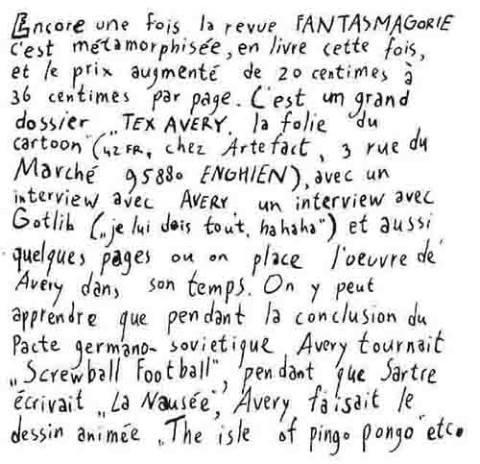 Encore une fois la revue FANTASMAGORIE
c'est métamorphisée, en livre cette fois,
et le prix augmenté de 20 centimes à
36 centimes par page. C'est un grand
dossier „TEX AVERY, la folie du
cartoon" (42 FR, chez Artefact, 3 rue du
Marché 95880 ENGHIEN), avec un
interview avec AVERY, un interview avec
Gotlib („je lui dois tout, hahaha") et aussi
quelques pages ou on place l'oeuvre de
Avery dans son temps. On y peut
apprendre que pendant la conclusion du
Pacte germano-sovietique Avery tournait
„Screwball Football", pendant que Sartre
écrivait „La Nausée", Avery faisait le
dessin animée „The isle of pingo pongo" etc.